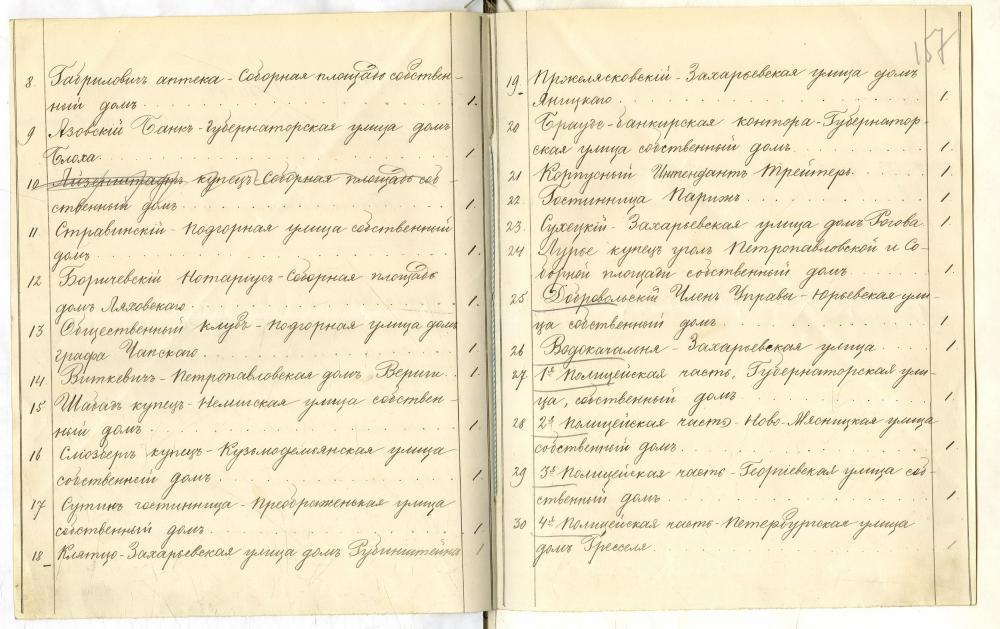 8. Габриловичъ аптека - Соборная площадь собствен-
ный домъ. 1.
9 Азовскій Банкъ - Губернаторская улица домъ
Блоха. 1
10 Айзенштадтъ купецъ Соборная площадь соб-
ственный домъ 1.
11. Стравинскій - Подгорная улица собственный
домъ. 1.
12 Боричевскій Нотаріусъ - Соборная площадь
домъ Ляховскаго 1.
13. Общественный клубъ - Подгорная улица домъ
графа Чапскаго. 1.
14 Виткевичъ - Петропавловская домъ Вериги. 1.
15 купецъ - Немигская улица собствен-
ный домъ 1.
16 Слiозбергъ купецъ - Кузьмодемьянская улица
собственный домъ. 1.
17 Сутинъ гостинница - Преображенская улица
собственный домъ. 1
18 - Клятцо - Захарьевская улица домъ Рубинштейна 1
157
19 - Пржелясковскій - Захарьевская улица домъ
Яницкаго 1.
20 Браудэ - банкирская контора - Губернатор-
ская улица собственный домъ. 1.
21 Корпусный Интендантъ Трейтеръ. 1.
22. Гостинница Парижъ 1.
23. Сухецкій - Захарьевская улица домъ Рогова 1.
24 Лурье купецъ уголъ Петропавловской и Со-
борной площади собственный домъ. 1.
25. Добровольскій Членъ Управы - Юрьевская ули-
ца собственный домъ 1
26 Водокачальня - Захарьевская улица 1.
27. 1я Полицейская часть, Губернаторская ули-
ца, собственный домъ 1.
28 2я Полицейская часть - Ново-Мясницкая улица
собственный домъ. 1.
29 3я Полицейская часть - Георгіевская улица соб-
ственный домъ 1.
30 4я Полицейская часть - Петербургская улица
домъ Гресселя. 1